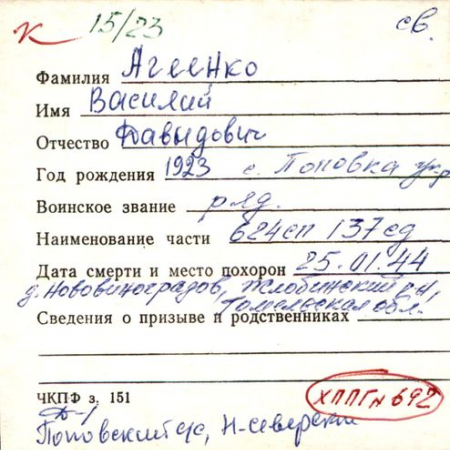 К 15/23 св.
Фамилия Агеенко
Имя Василий
Отчество Давыдович
Год рождения 1923 с. Поповка
Воинское звание ряд.
Наименование части 624сп 137сд
Дата смерти и место похорон 25.01.44
д. Нововиноградов, Жлобинский р-н,
Гомельская обл.
Сведения о призыве и родственниках
ЧКПФ з. 151
ХППГ № 692
Поповский с/с, Н-северский